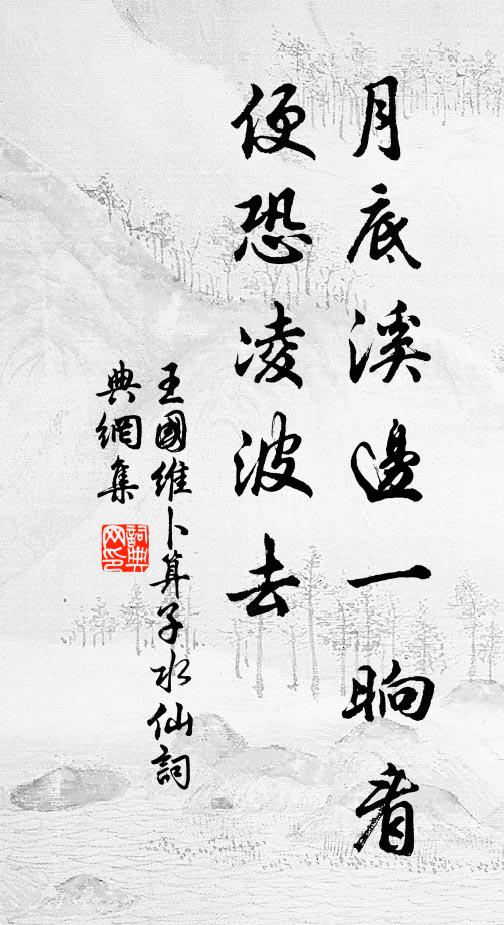 月底溪邊一晌看
便恐凌波去
王國維卜算子水仙詞
典網集
詞典
网印